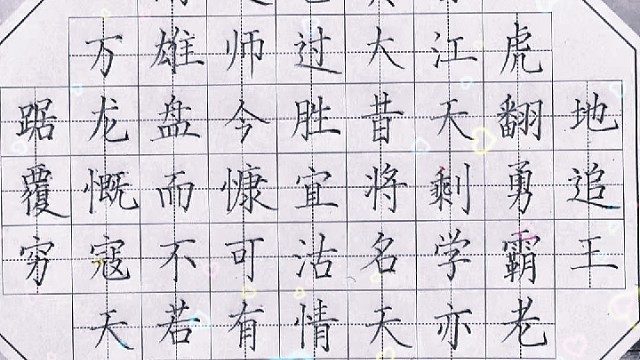 万雄师过大江虎
踞龙盘今胜昔天翻地
覆慨而慷宜将剩勇追
穷寇不可沽名学霸王
天若有情天亦老